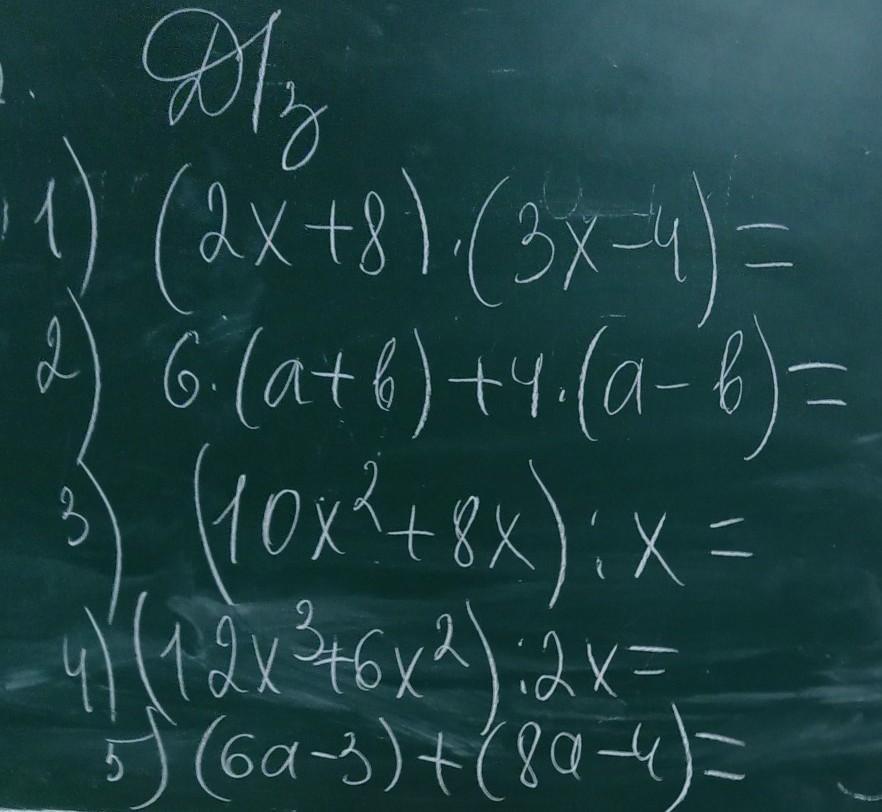 Д/з
1) (2x+8)·(3x-4)=
2) 6·(a+b)+4·(a-b)=
3) (10x²+8x):x=
4) (12x³+6x²):2x=
5) (6a-3)+(8a-4)=